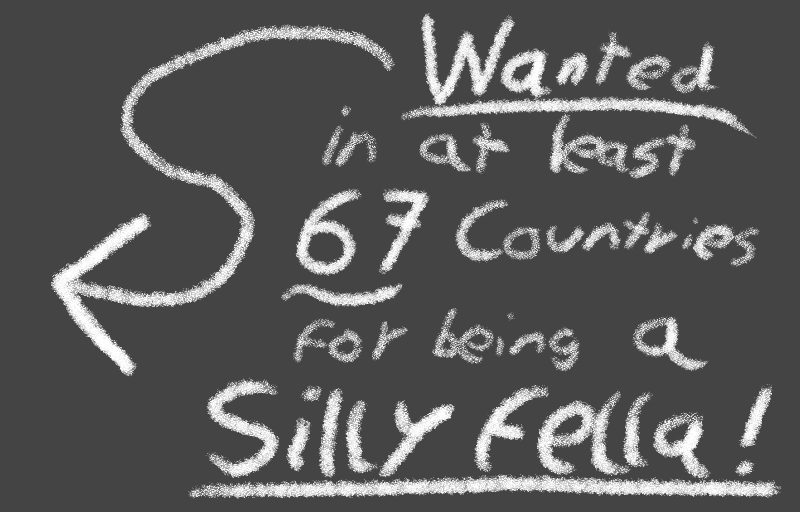 Wanted
in at least
67 Countries
for being a
Silly Fella!